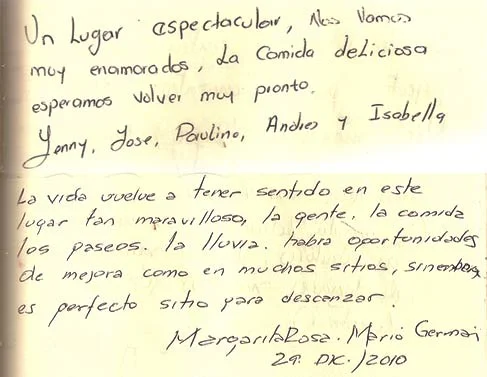 Un Lugar espectacular, Nos Vamos
muy enamorados, La Comida deLiciosa
esperamos volver muy pronto.
Yenny, Jose, Paulino, Andres y Isabella
La vida vuelve a tener sentido en este
lugar tan maravilloso, la gente, la comida
los paseos. la lluvia. habra oportunidades
de mejora como en muchos sitios, sinembarg
es perfecto sitio para descanzar.
MargaritaRosa. Mario German
29. DIC./2010